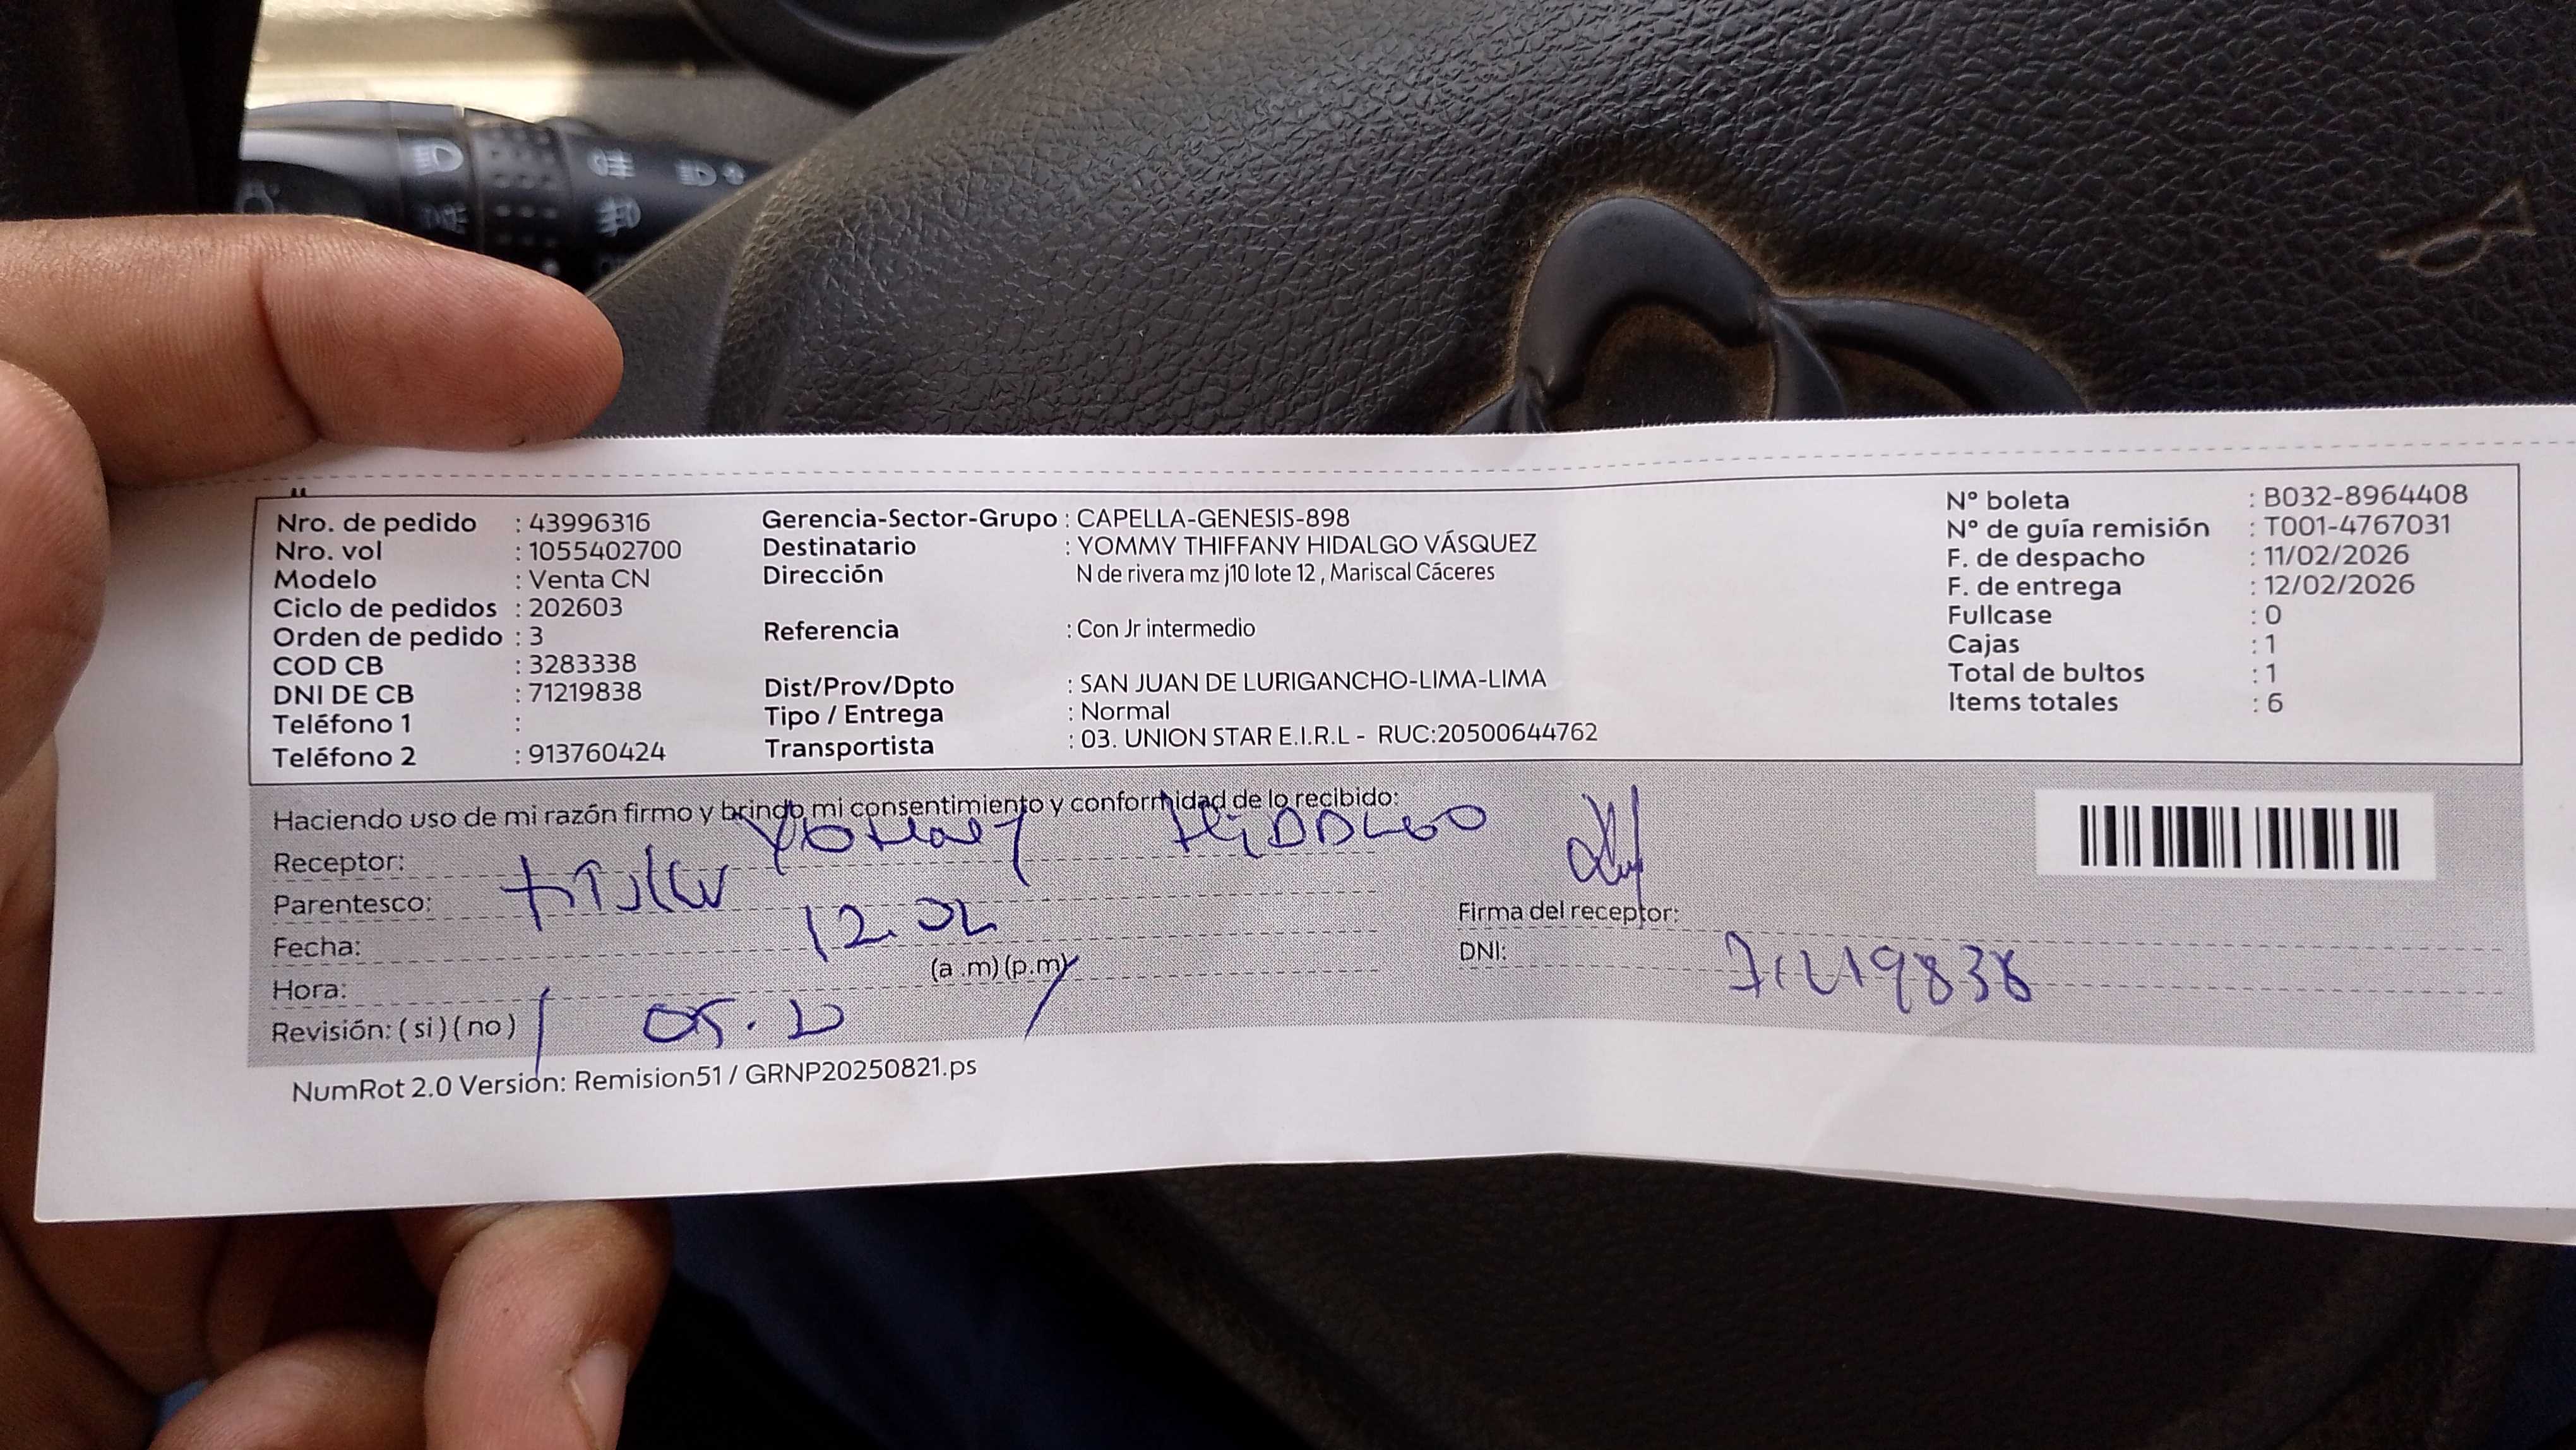 Nro. de pedido : 43996316
Nro. vol : 1055402700
Modelo : Venta CN
Ciclo de pedidos : 202603
Orden de pedido : 3
COD CB : 3283338
DNI DE CB : 71219838
Teléfono 1 :
Teléfono 2 : 913760424
Gerencia-Sector-Grupo : CAPELLA-GENESIS-898
Destinatario : YOMMY THIFFANY HIDALGO VÁSQUEZ
Dirección N de rivera mz j10 lote 12 , Mariscal Cáceres
Referencia : Con Jr intermedio
Dist/Prov/Dpto : SAN JUAN DE LURIGANCHO-LIMA-LIMA
Tipo / Entrega : Normal
Transportista : 03. UNION STAR E.I.R.L - RUC:20500644762
N° boleta : B032-8964408
N° de guía remisión : T001-4767031
F. de despacho : 11/02/2026
F. de entrega : 12/02/2026
Fullcase : 0
Cajas : 1
Total de bultos : 1
Items totales : 6
Haciendo uso de mi razón firmo y brindo mi consentimiento y conformidad de lo recibido:
Receptor:
Parentesco:
Fecha: 12.02
Hora: (a .m) (p.m)
Revisión: ( si ) ( no ) 05.20
Firma del receptor:
DNI: 71219838
NumRot 2.0 Version: Remision51 / GRNP20250821.ps